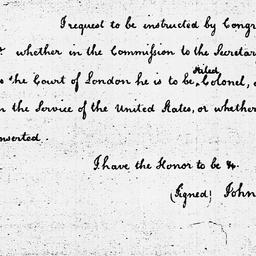 I request to be instructed by Congr
whether in the Commission to the Secretar
the Court of London he is to be stiled Colonel,
n the Service of the United States, or whether
nserted.
I have the Honor to be &.
(Signed) John